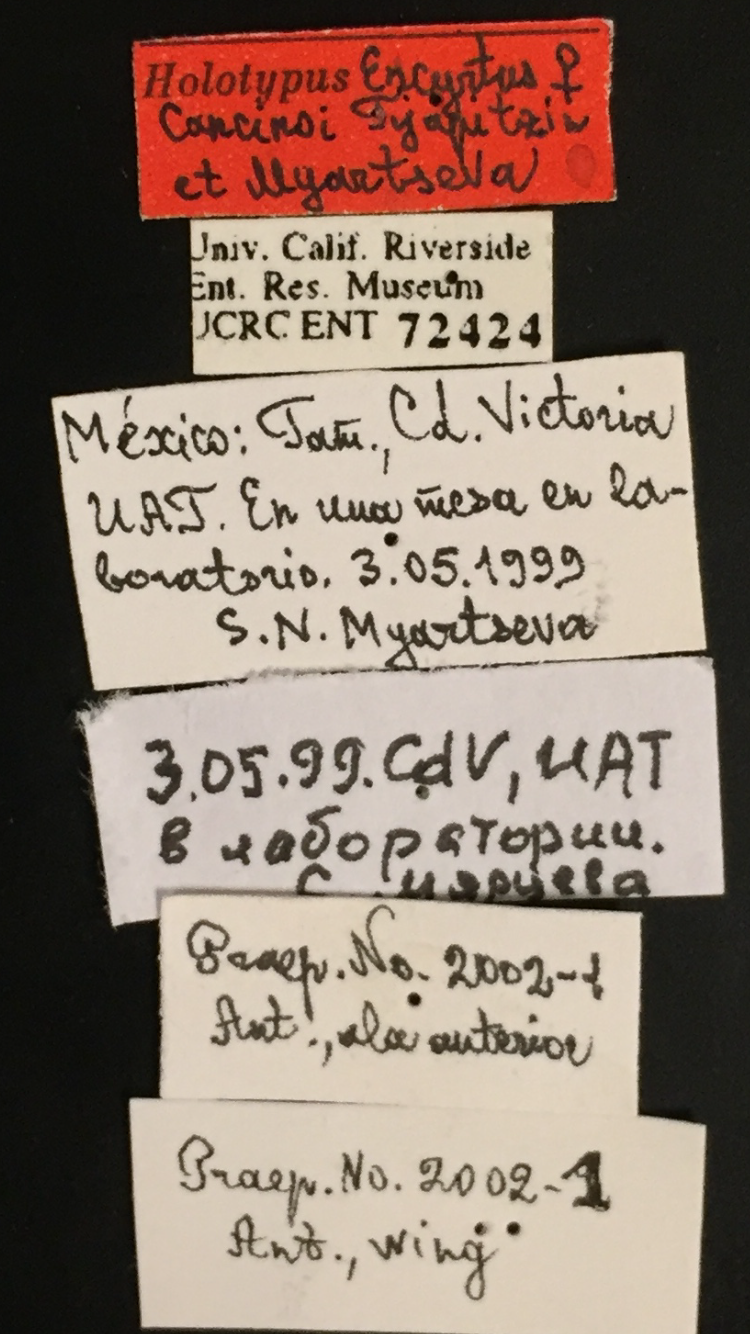 Holotypus Encyrtus ♀
Cancinoi Tjapitzin
et Myartseva
Univ. Calif. Riverside
Ent. Res. Museum
UCRC ENT 72424
México: Tam., Cd. Victoria
UAT. En una mesa en la-
boratorio. 3.05.1999
S.N. Myartseva
3.05.99. CdV, UAT
в лаборатории.
С. Мярцева
Praep. No. 2002-1
Ant., ala anterior
Praep. No. 2002-1
Ant., wing